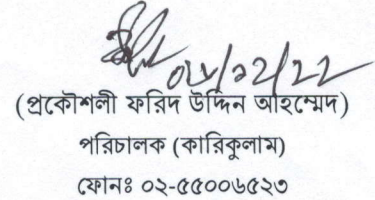 ০৮/১২/২২
(প্রকৌশলী ফরিদ উদ্দিন আহম্মেদ)
পরিচালক (কারিকুলাম)
ফোনঃ ০২-৫৫০০৬৫২৩